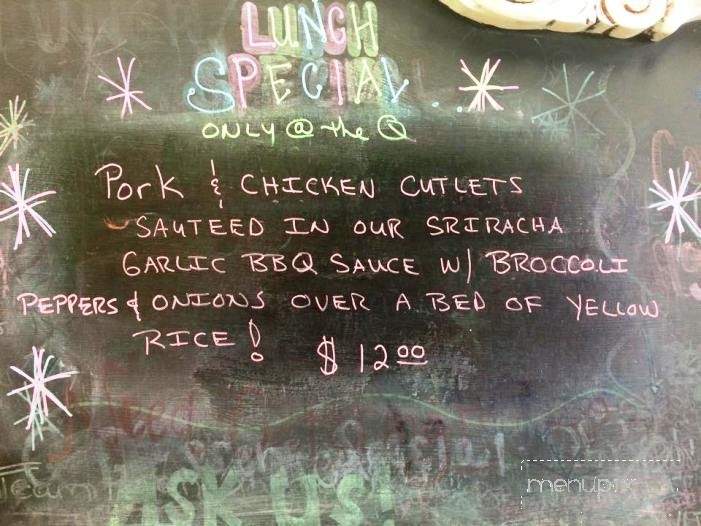 LUNCH
SPECIAL...
ONLY @ the Q
Pork & CHICKEN CUTLETS
SAUTEED IN OUR SRIRACHA
GARLIC BBQ SAUCE W/ BROCCOLI
PEPPERS & ONIONS OVER A BED OF YELLOW
RICE! $12.00
ASK US!
menupix